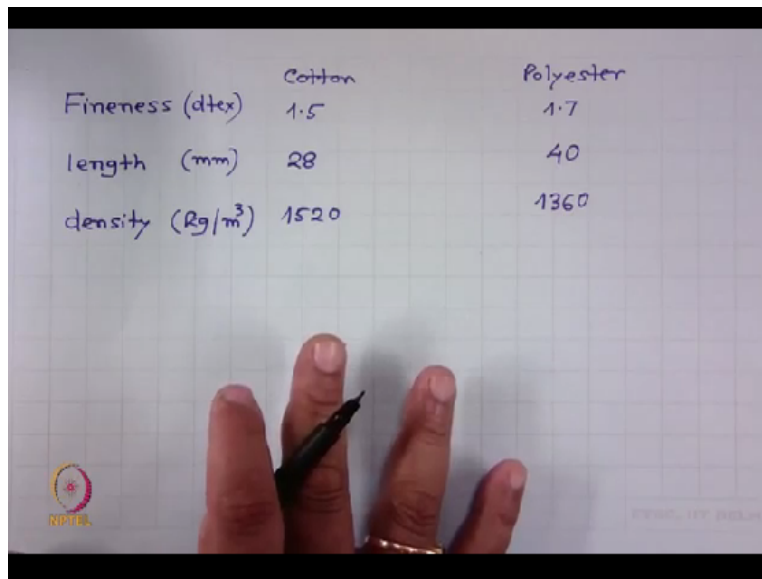 Cotton Polyester
Fineness (dtex) 1.5 1.7
length (mm) 28 40
density (kg/m³) 1520 1360
NPTEL